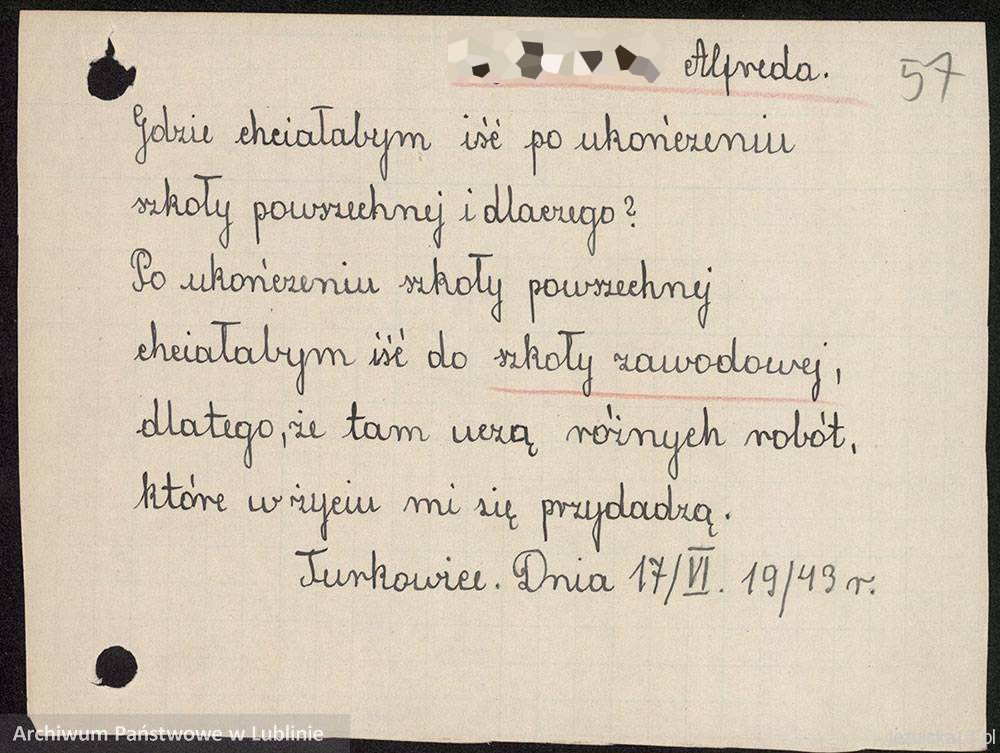 Alfreda. 57
Gdzie chciałabym iść po ukończeniu
szkoły powszechnej i dlaczego?
Po ukończeniu szkoły powszechnej
chciałabym iść do szkoły zawodowej,
dlatego, że tam uczą różnych robót,
które w życiu mi się przydadzą.
Turkowice. Dnia 17/VI. 19/43 r.
Archiwum Państwowe w Lublinie